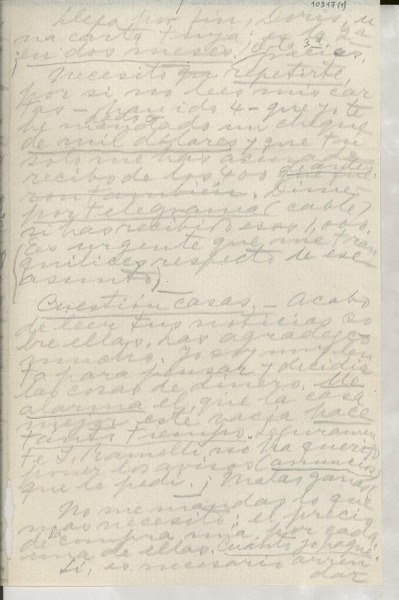 10317(1)
Llega por fin, Doris, u
na carta tuya; es la 3ª
en dos meses. Gracias.
Necesito ya repetirte,
por si no lees mis car
tas - han ido 4 - que yo te
he mandado un cheque
de mil dólares y que tu
solo me has acusado
recibo de los 400
ron también. Dime
por telegrama (cable)
si has recibido esos 1,000.
(es urgente que me tran
quilices respecto de ese
asunto).
Cuestión casas. - Acabo
de leer tus noticias so
bre ellas. Las agradezco
mucho. Yo soy muy len
ta para pensar y decidir
las cosas de dinero. Me
alarma el que la casa
mejor esté vacía hace
tanto tiempo. Seguramen
te S. Ramelli no ha querido
poner los avisos (anuncios)
que le pedí. ¡Malas ganas!
No me mandas lo que
mas necesito: el precio
de compra mía por cada
una de ellas. Cuánto yo pagué.
Sí, es necesario arren
dar